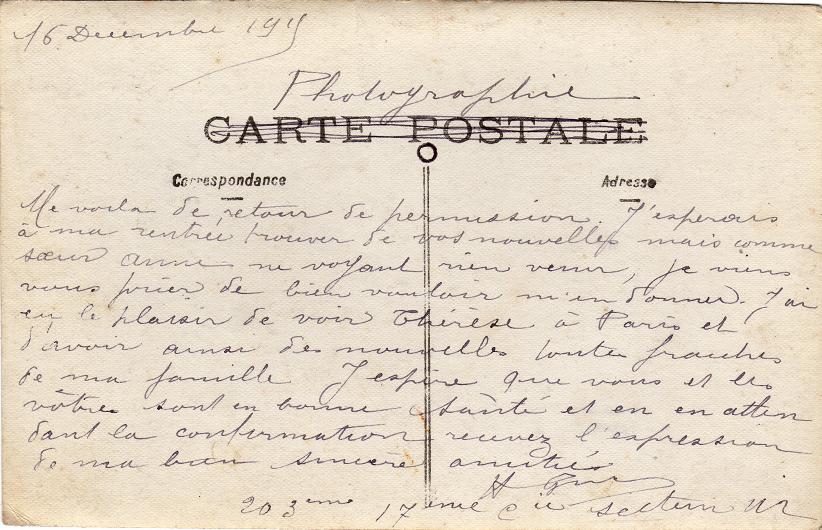 16 Decembre 191
Photographie
CARTE POSTALE
Correspondance
Adresse
Me voila de retour de permission. J'esperais
à ma rentrée trouver de vos nouvelles mais comme
sœur anne ne voyant rien venir, je viens
vous prier de bien vouloir m'en donner. J'ai
eu le plaisir de voir Thérèse à Paris et
d'avoir ainsi des nouvelles toutes fraiches
de ma famille J'espère que vous et les
vôtres sont en bonne santé et en atten
dant la confirmation recevez l'expression
de ma bien sincère amitiés
H
203eme 17eme Cie secteur